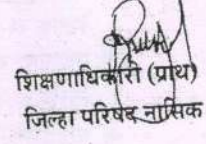 शिक्षणाधिकारी (प्राथ)
जिल्हा परिषद नासिक